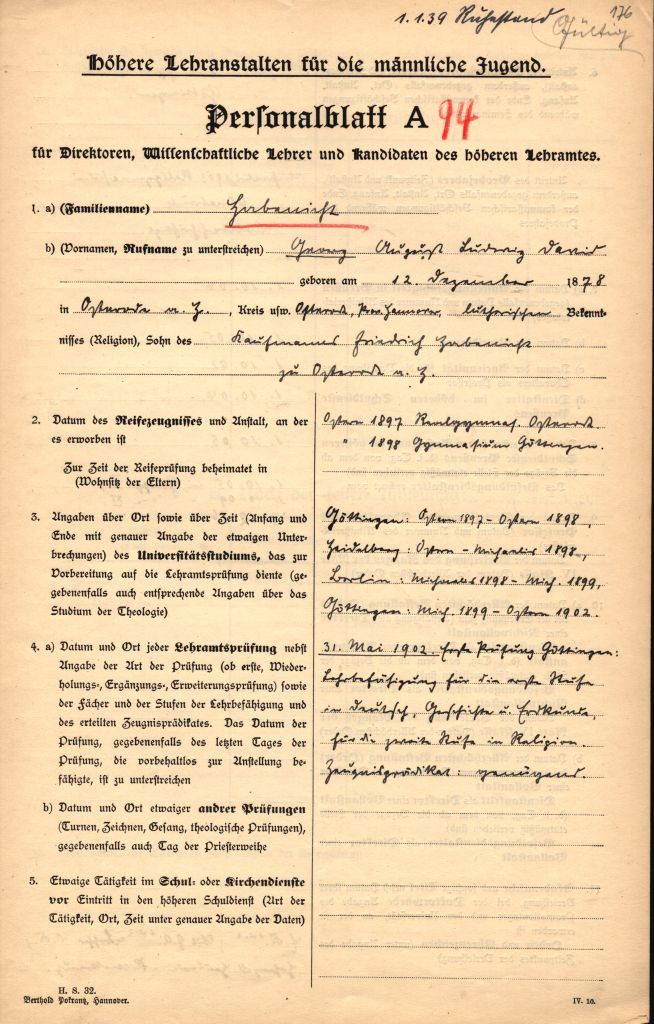 1.1.39 Ruhestand
176
Gültig
Höhere Lehranstalten für die männliche Jugend.
Personalblatt A 94
für Direktoren, Wissenschaftliche Lehrer und Kandidaten des höheren Lehramtes.
1. a) (Familienname) Habenicht
b) (Vornamen, Rufname zu unterstreichen) Georg August Ludwig David
geboren am 12. Dezember 1878
in Osterode a. H., Kreis usw. Osterode, Prov. Hannover, lutherischen Bekennt-
nisses (Religion), Sohn des Kaufmanns Friedrich Habenicht
zu Osterode a. H.
2. Datum des Reifezeugnisses und Anstalt, an der
es erworben ist
Zur Zeit der Reifeprüfung beheimatet in
(Wohnsitz der Eltern)
Ostern 1897 Realgymnas. Osterode.
" 1898 Gymnasium Göttingen.
3. Angaben über Ort sowie über Zeit (Anfang und
Ende mit genauer Angabe der etwaigen Unter-
brechungen) des Universitätsstudiums, das zur
Vorbereitung auf die Lehramtsprüfung diente (ge-
gebenenfalls auch entsprechende Angaben über das
Studium der Theologie)
Göttingen: Ostern 1897 - Ostern 1898,
Heidelberg: Ostern - Michaelis 1898,
Berlin: Michaelis 1898 - Mich. 1899,
Göttingen: Mich. 1899 - Ostern 1902.
4. a) Datum und Ort jeder Lehramtsprüfung nebst
Angabe der Art der Prüfung (ob erste, Wieder-
holungs-, Ergänzungs-, Erweiterungsprüfung) sowie
der Fächer und der Stufen der Lehrbefähigung und
des erteilten Zeugnisprädikates. Das Datum der
Prüfung, gegebenenfalls des letzten Tages der
Prüfung, die vorbehaltlos zur Anstellung be-
fähigte, ist zu unterstreichen
31. Mai 1902. Erste Prüfung Göttingen:
Lehrbefähigung für die erste Stufe
in Deutsch, Geschichte u. Erdkunde,
für die zweite Stufe in Religion.
Zeugnisprädikat: genügend.
b) Datum und Ort etwaiger andrer Prüfungen
(Turnen, Zeichnen, Gesang, theologische Prüfungen),
gegebenenfalls auch Tag der Priesterweihe
5. Etwaige Tätigkeit im Schul- oder Kirchendienste
vor Eintritt in den höheren Schuldienst (Art der
Tätigkeit, Ort, Zeit unter genauer Angabe der Daten)
H. S. 32.
Berthold Pokrantz, Hannover.
IV. 10.